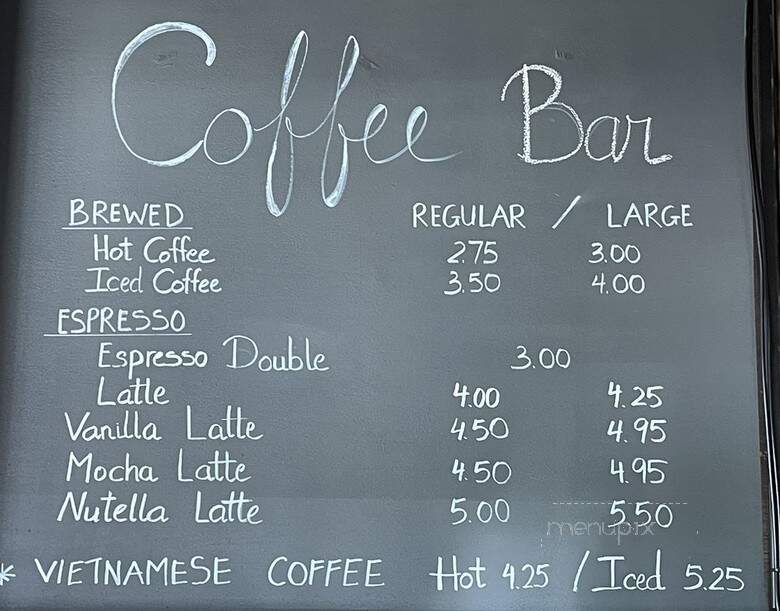 Coffee Bar
BREWED REGULAR / LARGE
Hot Coffee 2.75 3.00
Iced Coffee 3.50 4.00
ESPRESSO
Espresso Double 3.00
Latte 4.00 4.25
Vanilla Latte 4.50 4.95
Mocha Latte 4.50 4.95
Nutella Latte 5.00 5.50
menupix
* VIETNAMESE COFFEE Hot 4.25 / Iced 5.25